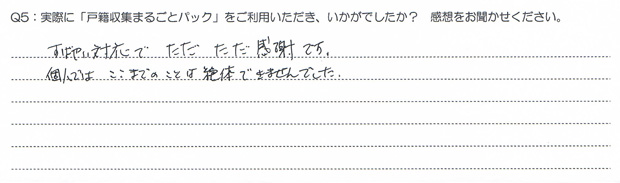 Q5：実際に「戸籍収集まるごとパック」をご利用いただき、いかがでしたか？ 感想をお聞かせください。
すばやい対応で ただ ただ 感謝です。
個人では ここまでのことは絶体で出ませんでした。